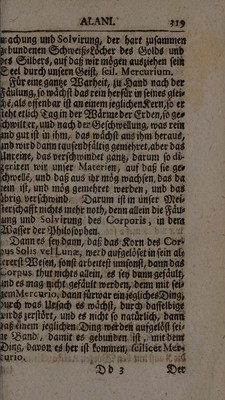 ALANI. 319
machung und Solvirung, der hart zusammen
gebundenen Schweiß-Löcher des Golds und
des Silbers, auf daß wir mögen ausziehen sein
Seel durch unseen Geist, scil. Mercurium.
Für eine gantze Warheit, zu Hand nach der
Fäulung, so wächst das rein herfür in seines glei-
che, als offenbar ist an einem jeglichen Kern, so er
steht etlich Tag in der Wärme der Erden, so ge-
schwilt er, und nach der Geschwellung, was rein
und gut ist in ihm, das wächst aus ihm heraus,
und wird dann tausendfältig gemehret, aber das
Unreine, das verschwindet gantz, darum so di-
geriren wir unser Materien, auf daß sie ge-
schwelle, und daß aus ihr mög wachsen, das da
rein ist, und mög gemehret werden, und das
übrig verschwind. Darum ist in unser Mei-
sterschafft nichts mehr noth, denn allein die Fäu-
lung und Solvirung des Corporis, in dem
Wasser der Philosophen.
Dann es sey dann, daß das Korn des Cor-
pus Solis vel Lunæ, werd aufgelöset in sein al-
lererst Wesen, sonst arbeitest umsonst, dann das
Corpus thut nichts allein, es sey dann gefäult,
und es mag nicht gefäult werden, denn mit sei-
nem Mercurio, dann fürwar ein jegliches Ding,
durch was Ursach es wächst, durch dasselbige
wirds zerstört, und es nicht so natürlich, dann
daß einem jeglichen Ding werden aufgelöst sei-
ne Band, damit es gebunden ist, mit dem
Ding, davon es her ist kommen, scilicet Mer-
curio.
Dd 3 Der